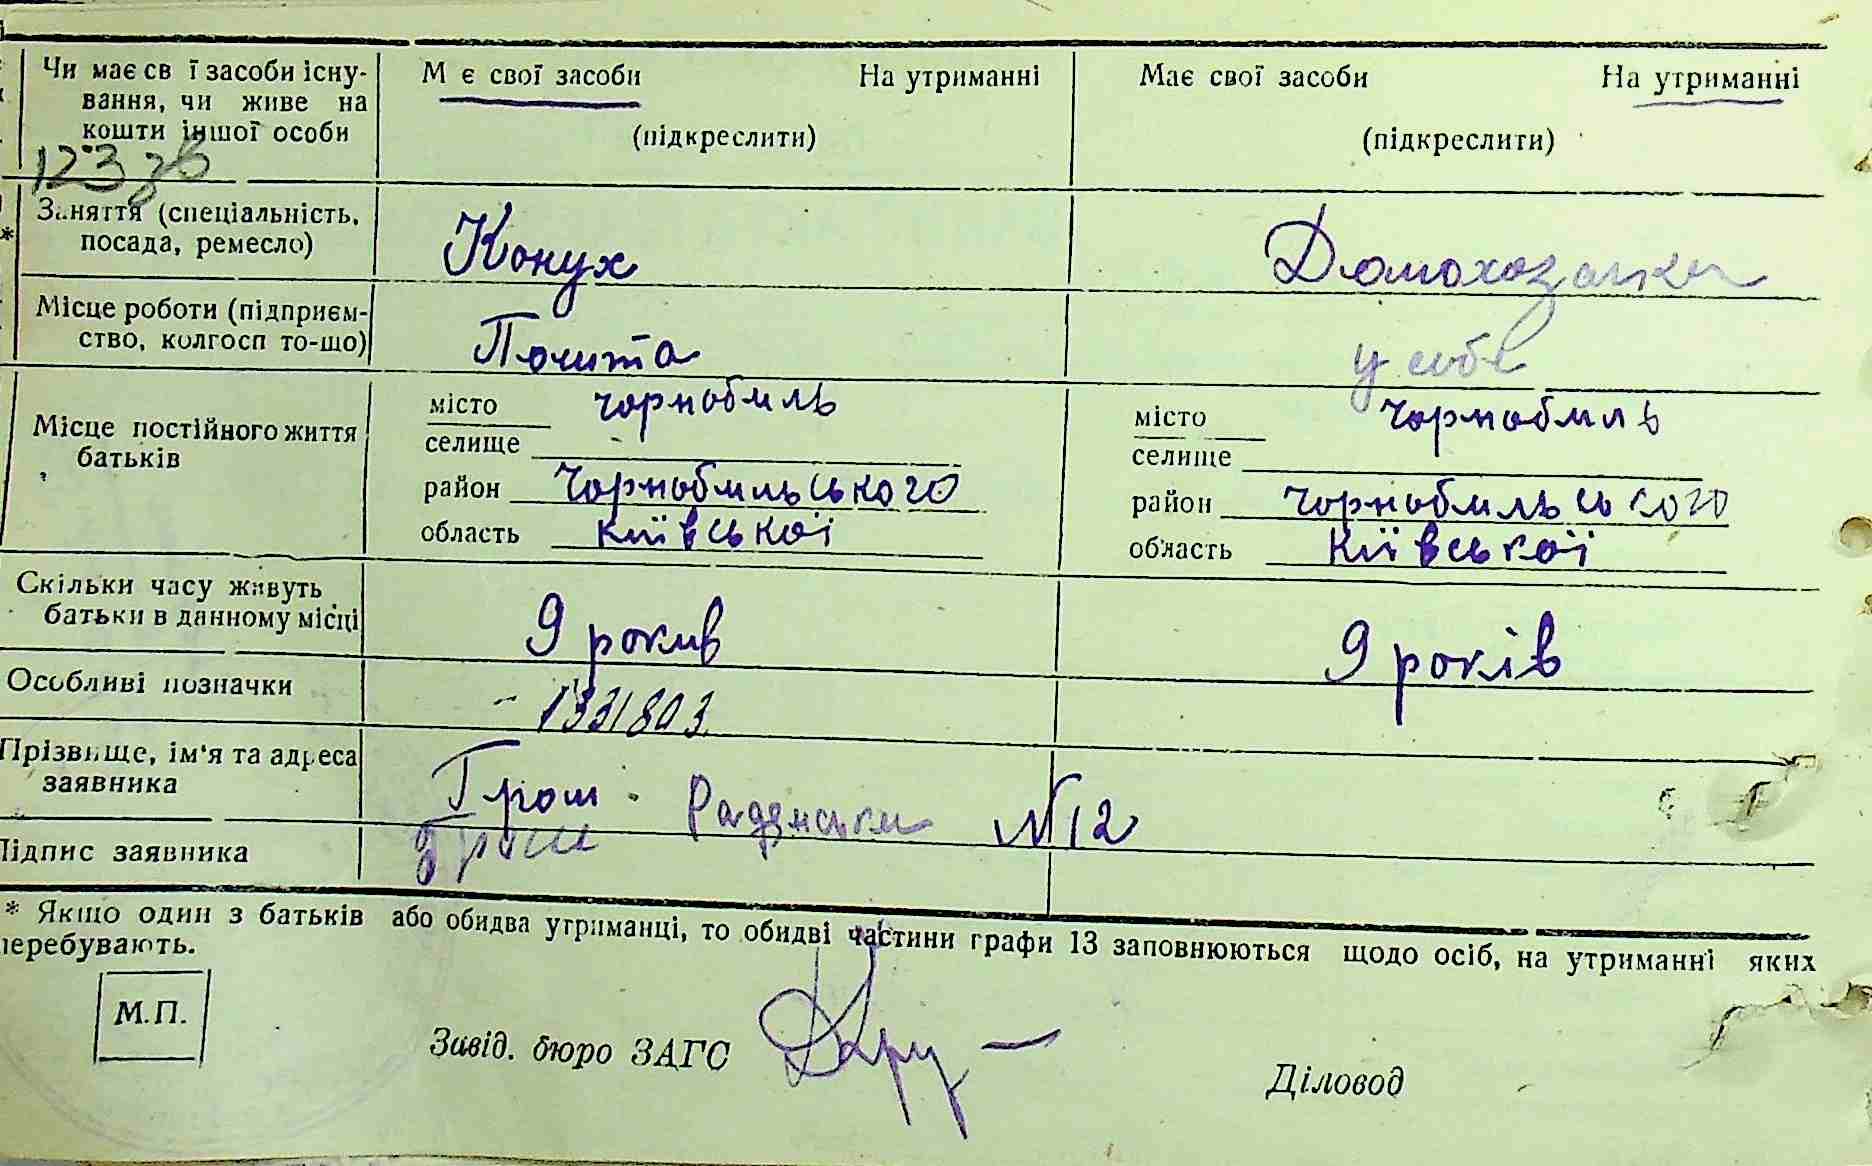 Чи має св ї засоби існу- М є свої засоби На утриманні Має свої засоби На утриманні
вання, чи живе на
кошти іншої особи (підкреслити) (підкреслити)
123
Заняття (спеціальність, Конух Домохозяйка
посада, ремесло)
Місце роботи (підприєм- Почита у собе
ство, колгосп то-що)
місто чорнобиль місто чорнобиль
Місце постійного життя селище селище
батьків район чорнобильського район чорнобильського
область київської область київської
Скільки часу живуть 9 рокив 9 років
батьки в данному місці
Особливі позначки - 1331803.
Прізвище, ім'я та адреса Грош. N 12
заявника
Підпис заявника Грош
* Якшо один з батьків або обидва утриманці, то обидві частини графи 13 заповнюються щодо осіб, на утриманні яких
перебувають.
М.П.
Завід. бюро ЗАГС Діловод